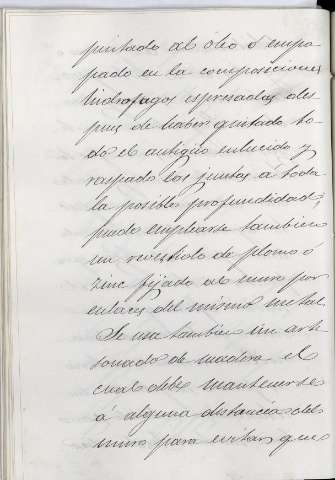 pintado al óleo ó empa-
pado en la composiciones
hidrofugos espresadas des-
pues de haber quitado to-
do el antiguo enlucido y
raspado las juntas a toda
la posible profundidad;
puede emplearse tambien
un revestido de plomo ó
zinc fijado al muro por
enlaces del mismo metal.
Se usa tambien un arte-
sonado de madera, el
cual debe mantenerse
á alguna distancia del
muro para evitar que